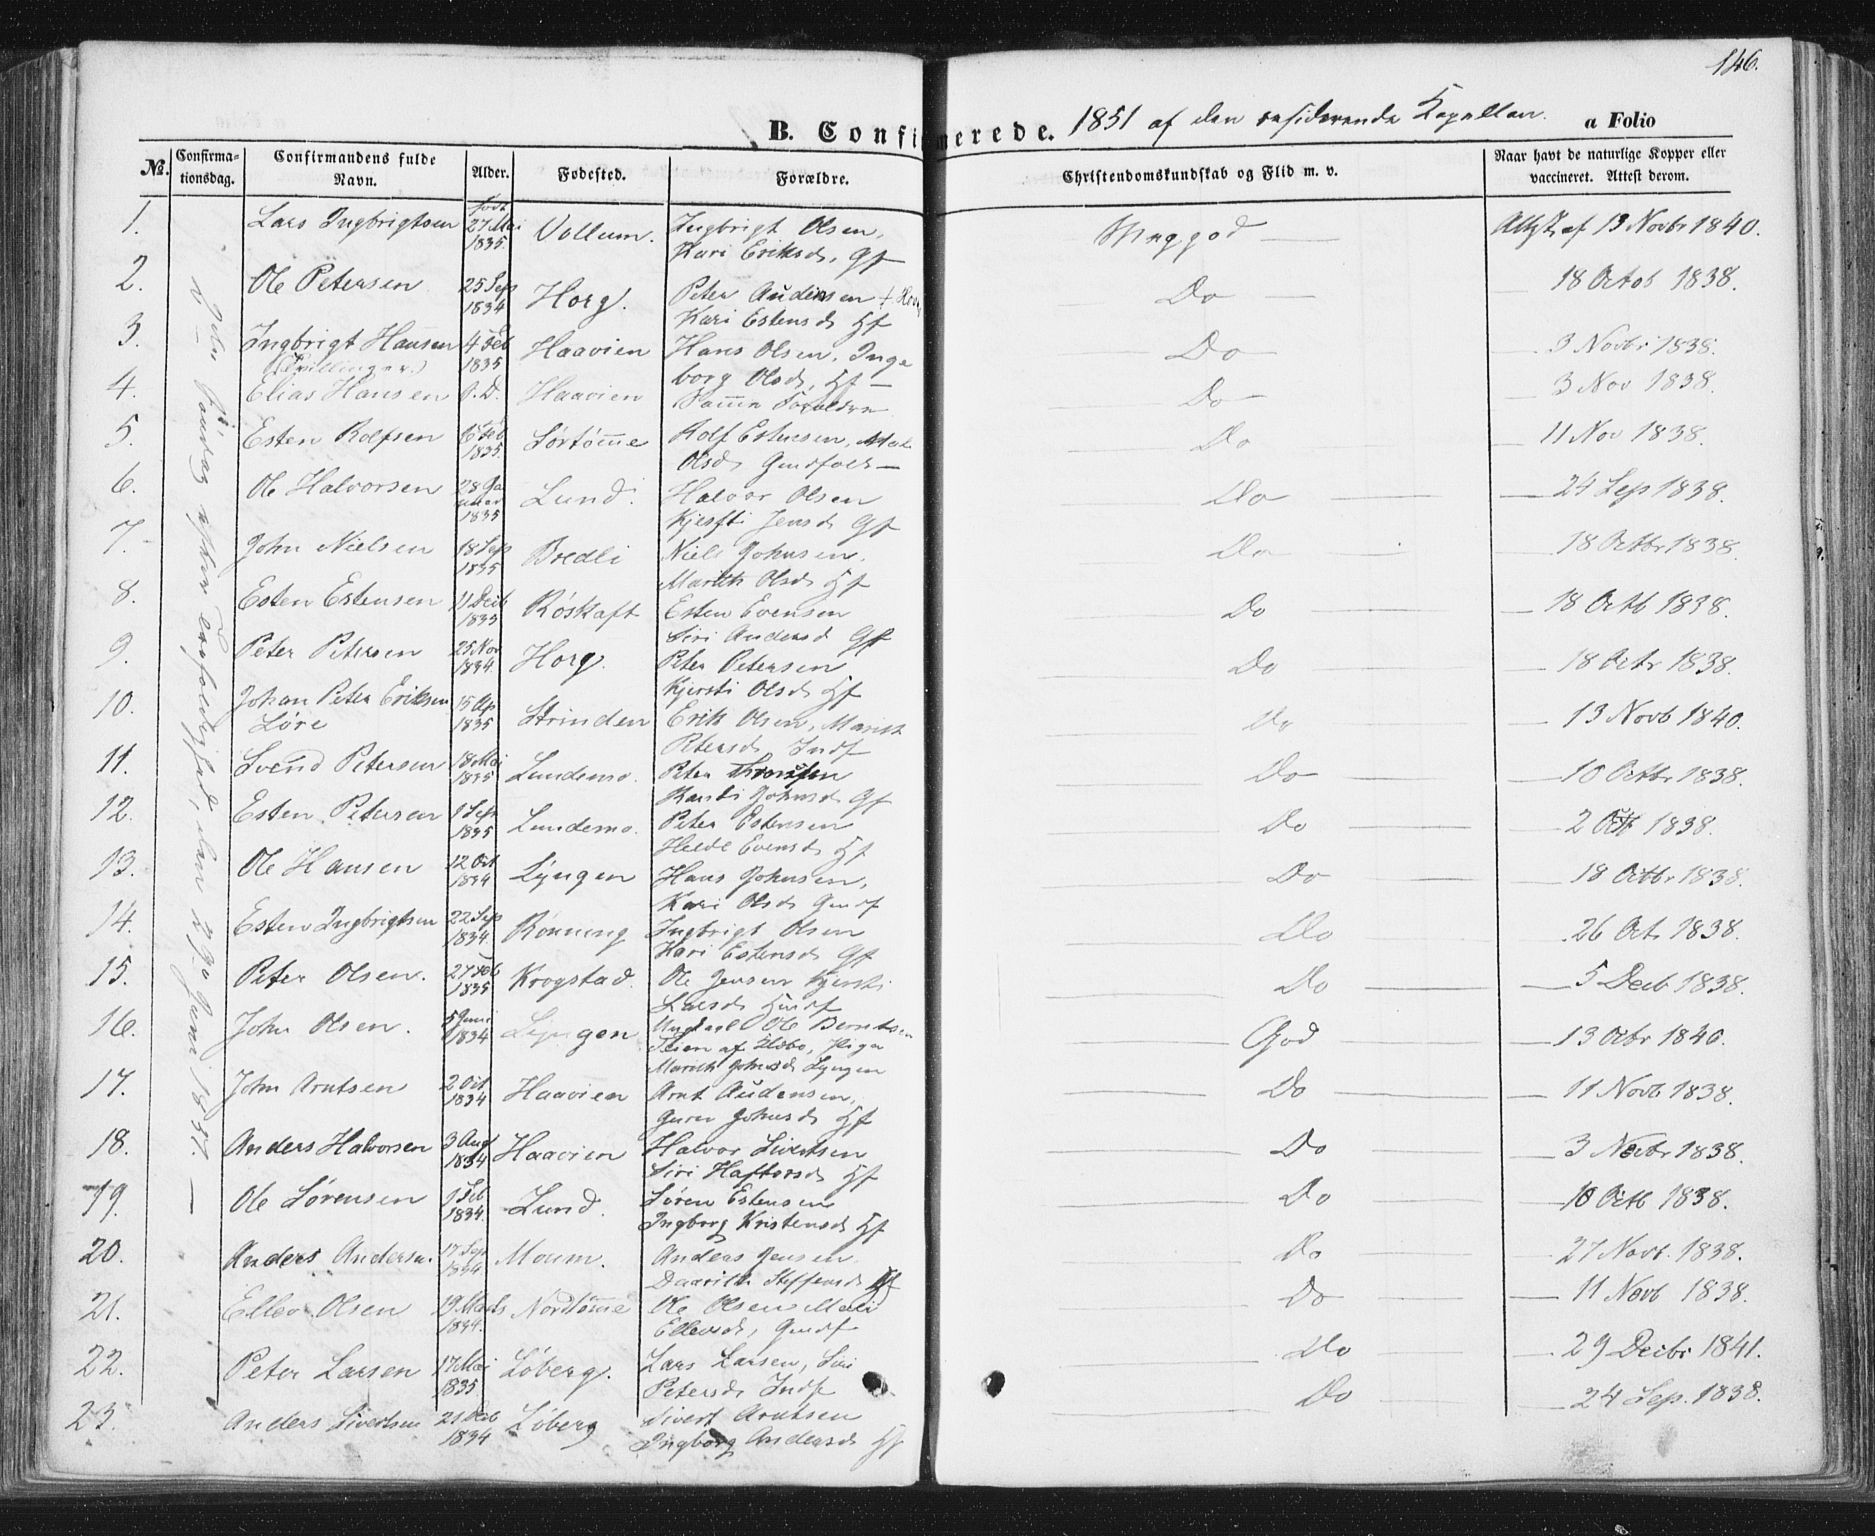 146.
B. Confirmerede. 1851 af den residerende Kapellan. a Folio
No. Confirmationsdag. Confirmandens fulde Navn. Alder. Fødested. Forældre. Christendomskundskab og Flid m. v. Naar havt de naturlige Kopper eller vaccineret. Attest derom.
1. Lars Ingbrigtsen født 27 Mai 1835 Vollum. Ingbrigt Olsen, Kari Eriksd. Gf Meg god Attest af 13 Novbr 1840.
2. Ole Petersen 25 Sep 1834 Horg. Peter Audensen + Kari Estensd Hf Do 18 Octob 1838.
3. Ingbrigt Hansen (Tvillinger.) 4 Feb 1835 Haavien Hans Olsen, Ingeborg Olsd. Hf Do 3 Novbr 1838.
4. Elias Hansen s. D. Haavien Samme Forældre Do 3 Nov 1838.
5. Esten Rolfsen 6 Feb 1835. Sørtømme Rolf Estensen, Mali Olsd. Gmdfolk Do 11 Nov 1838.
6. Ole Halvorsen 28 Januar 1835 Lund. Halvor Olsen Kjersti Jensd. Gf Do 24 Sep 1838.
7. John Nielsen 18 Sep 1835 Bredli Niels Johnsen. Marith Olsd. Hf Do 18 Octbr 1838.
8. Esten Estensen 11 Decb 1833 Røskaft Esten Evensen Siri Andersd Gf Do 18 Octb 1838.
9. Peter Petersen 25 Nov 1834. Horg. Peter Petersen Kjersti Olsd. Hf Do 18 Octr 1838.
10. Johan Peter Eriksen Løre 15 Ap 1835 Strinden Erik Olsen, Marith Petersd. Indf Do 13 Novb 1840.
11. Svend Petersen 18 Mai 1835 Lundemo. Peter Johnsd. Gf Do 10 Octbr 1838.
12. Esten Petersen 1 Sep 1835 Lundemo. Peter Estensen Evensd. Hf Do 2 Oct 1838.
13. Ole Hansen 12 Oct 1834 Lyngen Hans Johnsen, Kari Olsd. Gmdf Do 18 Octbr 1838.
14. Esten Ingbrigtsen 22 Sep 1834. Rønning Ingbrigt Olsen Kari Estensd. Gf Do 26 Oct. 1838.
15. Peter Olsen. 27 Feb 1835 Krogstad. Ole Jensen Kjersti Larsd. Do 5 Decb 1838.
16. John Olsen. 5 Juni 1834 Lyngen Ungkarl Ole Berntsen af Pige Marith Johnsd. Lyngen God 13 Octbr 1840.
17. John Arntsen 2 Oct 1834 Haavien Arnt Audensen, Guru Johnsd. Hf Do 11 Novb 1838.
18. Anders Halvorsen 3 Aug 1834 Haavien Halvor Sivertsen Siri Haftorsd. Hf Do 3 Novbr 1838.
19. Ole Sørensen 1 Feb 1834. Lund. Søren Estensen Ingborg Kristensd. Hf Do 10 Octb 1838.
20. Anders Andersn. 17 Sep 1834 Moum. Anders Jensen Daarith Steffensd. Hf Do 27 Novb. 1838.
21. Ellev Olsen 19 Marts 1834. Nordtømme Ole Olsen Mali Ellevsd., Gmdf Do 11 Novb 1838.
22. Peter Larsen 17 Mai 1835 Løberg. Lars Larsen, Siri Petersd. Indf Do 29 Decbr 1841.
23. Anders Sivertsen 21 Decb 1834 Løberg Sivert Arntsen Ingborg Andersd. Hf Do 24 Sep. 1838.
Søndag efter den Juni 1851.